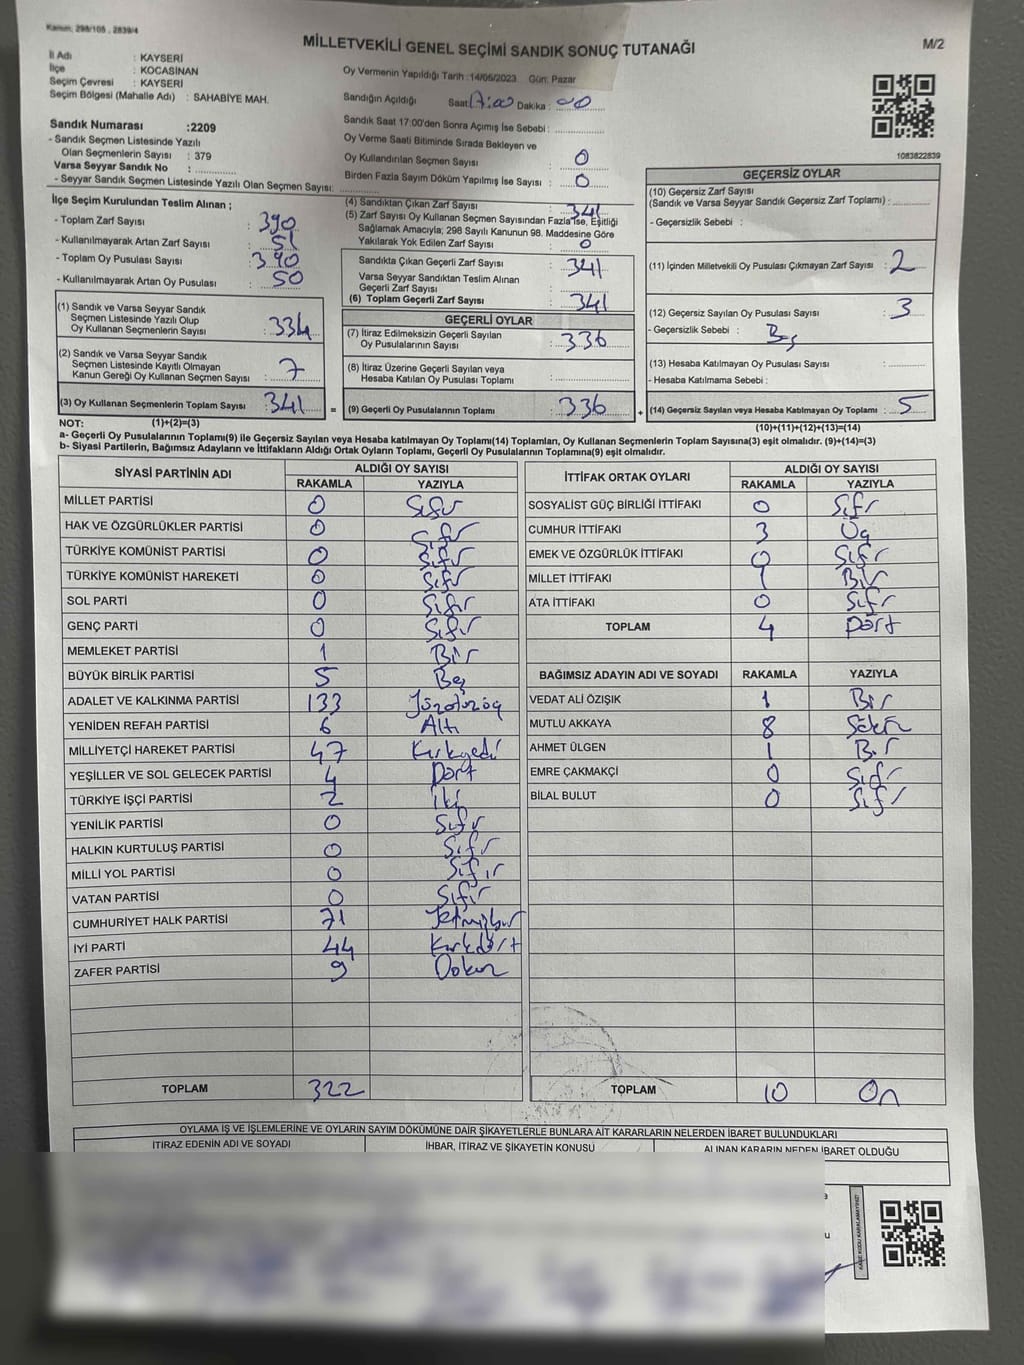 Kanun; 298/105 , 2839/4
MİLLETVEKİLİ GENEL SEÇİMİ SANDIK SONUÇ TUTANAĞI
M/2
İl Adı : KAYSERİ
İlçe : KOCASİNAN
Seçim Çevresi : KAYSERİ
Seçim Bölgesi (Mahalle Adı) : SAHABİYE MAH.
Sandık Numarası :2209
- Sandık Seçmen Listesinde Yazılı
Olan Seçmenlerin Sayısı : 379
Varsa Seyyar Sandık No :
- Seyyar Sandık Seçmen Listesinde Yazılı Olan Seçmen Sayısı:
Oy Vermenin Yapıldığı Tarih :14/05/2023 Gün: Pazar
Sandığın Açıldığı Saat 17:00 Dakika : 00
Sandık Saat 17:00'den Sonra Açımış İse Sebebi :
Oy Verme Saati Bitiminde Sırada Bekleyen ve
Oy Kullandırılan Seçmen Sayısı : 0
Birden Fazla Sayım Döküm Yapılmış İse Sayısı : 0
1083822839
İlçe Seçim Kurulundan Teslim Alınan ;
- Toplam Zarf Sayısı : 390
- Kullanılmayarak Artan Zarf Sayısı : 51
- Toplam Oy Pusulası Sayısı : 390
- Kullanılmayarak Artan Oy Pusulası : 50
(1) Sandık ve Varsa Seyyar Sandık
Seçmen Listesinde Yazılı Olup
Oy Kullanan Seçmenlerin Sayısı : 334
(2) Sandık ve Varsa Seyyar Sandık
Seçmen Listesinde Kayıtlı Olmayan
Kanun Gereği Oy Kullanan Seçmen Sayısı : 7
(3) Oy Kullanan Seçmenlerin Toplam Sayısı : 341
(1)+(2)=(3)
(4) Sandıktan Çıkan Zarf Sayısı : 341
(5) Zarf Sayısı Oy Kullanan Seçmen Sayısından Fazla İse, Eşitliği
Sağlamak Amacıyla; 298 Sayılı Kanunun 98. Maddesine Göre
Yakılarak Yok Edilen Zarf Sayısı : 0
Sandıkta Çıkan Geçerli Zarf Sayısı : 341
Varsa Seyyar Sandıktan Teslim Alınan
Geçerli Zarf Sayısı :
(6) Toplam Geçerli Zarf Sayısı : 341
GEÇERLİ OYLAR
(7) İtiraz Edilmeksizin Geçerli Sayılan
Oy Pusulalarının Sayısı : 336
(8) İtiraz Üzerine Geçerli Sayılan veya
Hesaba Katılan Oy Pusulası Toplamı :
= (9) Geçerli Oy Pusulalarının Toplamı : 336
GEÇERSİZ OYLAR
(10) Geçersiz Zarf Sayısı
(Sandık ve Varsa Seyyar Sandık Geçersiz Zarf Toplamı) :
- Geçersizlik Sebebi :
(11) İçinden Milletvekili Oy Pusulası Çıkmayan Zarf Sayısı : 2
(12) Geçersiz Sayılan Oy Pusulası Sayısı : 3
- Geçersizlik Sebebi : Boş
(13) Hesaba Katılmayan Oy Pusulası Sayısı :
- Hesaba Katılmama Sebebi :
+ (14) Geçersiz Sayılan veya Hesaba Katılmayan Oy Toplamı : 5
(10)+(11)+(12)+(13)=(14)
NOT:
a- Geçerli Oy Pusulalarının Toplamı(9) ile Geçersiz Sayılan veya Hesaba katılmayan Oy Toplamı(14) Toplamları, Oy Kullanan Seçmenlerin Toplam Sayısına(3) eşit olmalıdır. (9)+(14)=(3)
b- Siyasi Partilerin, Bağımsız Adayların ve İttifakların Aldığı Ortak Oyların Toplamı, Geçerli Oy Pusulalarının Toplamına(9) eşit olmalıdır.
SİYASİ PARTİNİN ADI ALDIĞI OY SAYISI
RAKAMLA YAZIYLA
MİLLET PARTİSİ 0 Sıfır
HAK VE ÖZGÜRLÜKLER PARTİSİ 0 Sıfır
TÜRKİYE KOMÜNİST PARTİSİ 0 Sıfır
TÜRKİYE KOMÜNİST HAREKETİ 0 Sıfır
SOL PARTİ 0 Sıfır
GENÇ PARTİ 0 Sıfır
MEMLEKET PARTİSİ 1 Bir
BÜYÜK BİRLİK PARTİSİ 5 Beş
ADALET VE KALKINMA PARTİSİ 133 Yüzotuzüç
YENİDEN REFAH PARTİSİ 6 Altı
MİLLİYETÇİ HAREKET PARTİSİ 47 Kırkyedi
YEŞİLLER VE SOL GELECEK PARTİSİ 4 Dört
TÜRKİYE İŞÇİ PARTİSİ 2 İki
YENİLİK PARTİSİ 0 Sıfır
HALKIN KURTULUŞ PARTİSİ 0 Sıfır
MİLLİ YOL PARTİSİ 0 Sıfır
VATAN PARTİSİ 0 Sıfır
CUMHURİYET HALK PARTİSİ 71 Yetmişbir
İYİ PARTİ 44 Kırkdört
ZAFER PARTİSİ 9 Dokuz
TOPLAM 322
İTTİFAK ORTAK OYLARI ALDIĞI OY SAYISI
RAKAMLA YAZIYLA
SOSYALİST GÜÇ BİRLİĞİ İTTİFAKI 0 Sıfır
CUMHUR İTTİFAKI 3 Üç
EMEK VE ÖZGÜRLÜK İTTİFAKI 0 Sıfır
MİLLET İTTİFAKI 1 Bir
ATA İTTİFAKI 0 Sıfır
TOPLAM 4 Dört
BAĞIMSIZ ADAYIN ADI VE SOYADI RAKAMLA YAZIYLA
VEDAT ALİ ÖZIŞIK 1 Bir
MUTLU AKKAYA 8 Sekiz
AHMET ÜLGEN 1 Bir
EMRE ÇAKMAKÇİ 0 Sıfır
BİLAL BULUT 0 Sıfır
TOPLAM 10 On
OYLAMA İŞ VE İŞLEMLERİNE VE OYLARIN SAYIM DÖKÜMÜNE DAİR ŞİKAYETLERLE BUNLARA AİT KARARLARIN NELERDEN İBARET BULUNDUKLARI
İTİRAZ EDENİN ADI VE SOYADI İHBAR, İTİRAZ VE ŞİKAYETİN KONUSU ALINAN KARARIN NEDEN İBARET OLDUĞU
KARE KODU KARALAMAYINIZ!